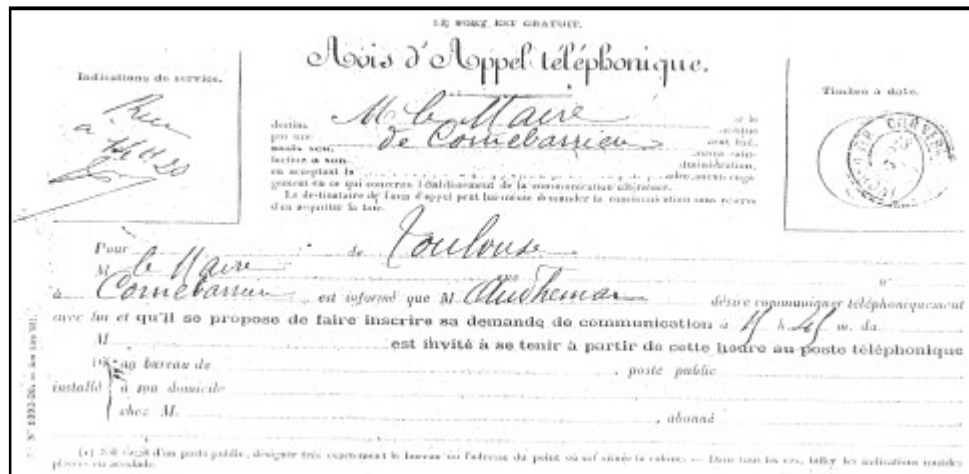 LE PORT EST GRATUIT.
Avis d'Appel téléphonique.
Indications de service.
Timbre à date.
M le Maire
de Cornebarrieu
en acceptant la
gement en ce qui concerne l'établissement de la communication ultérieure.
Le destinataire de l'avis d'appel peut lui-même demander la communication sous réserve
d'en acquitter la taxe.
Pour de Toulouse
M le Maire
à Cornebarrieu est informé que M Audhemar désire communiquer téléphoniquement
avec lui et qu'il se propose de faire inscrire sa demande de communication à h m. du
M est invité à se tenir à partir de cette heure au poste téléphonique
au bureau de , poste public
installé à son domicile
chez M. , abonné
(1) S'il s'agit d'un poste public, désigner très exactement le bureau ou l'adresse du point où est située la cabine. — Dans tous les cas, biffer les indications inutiles
placées en accolade.